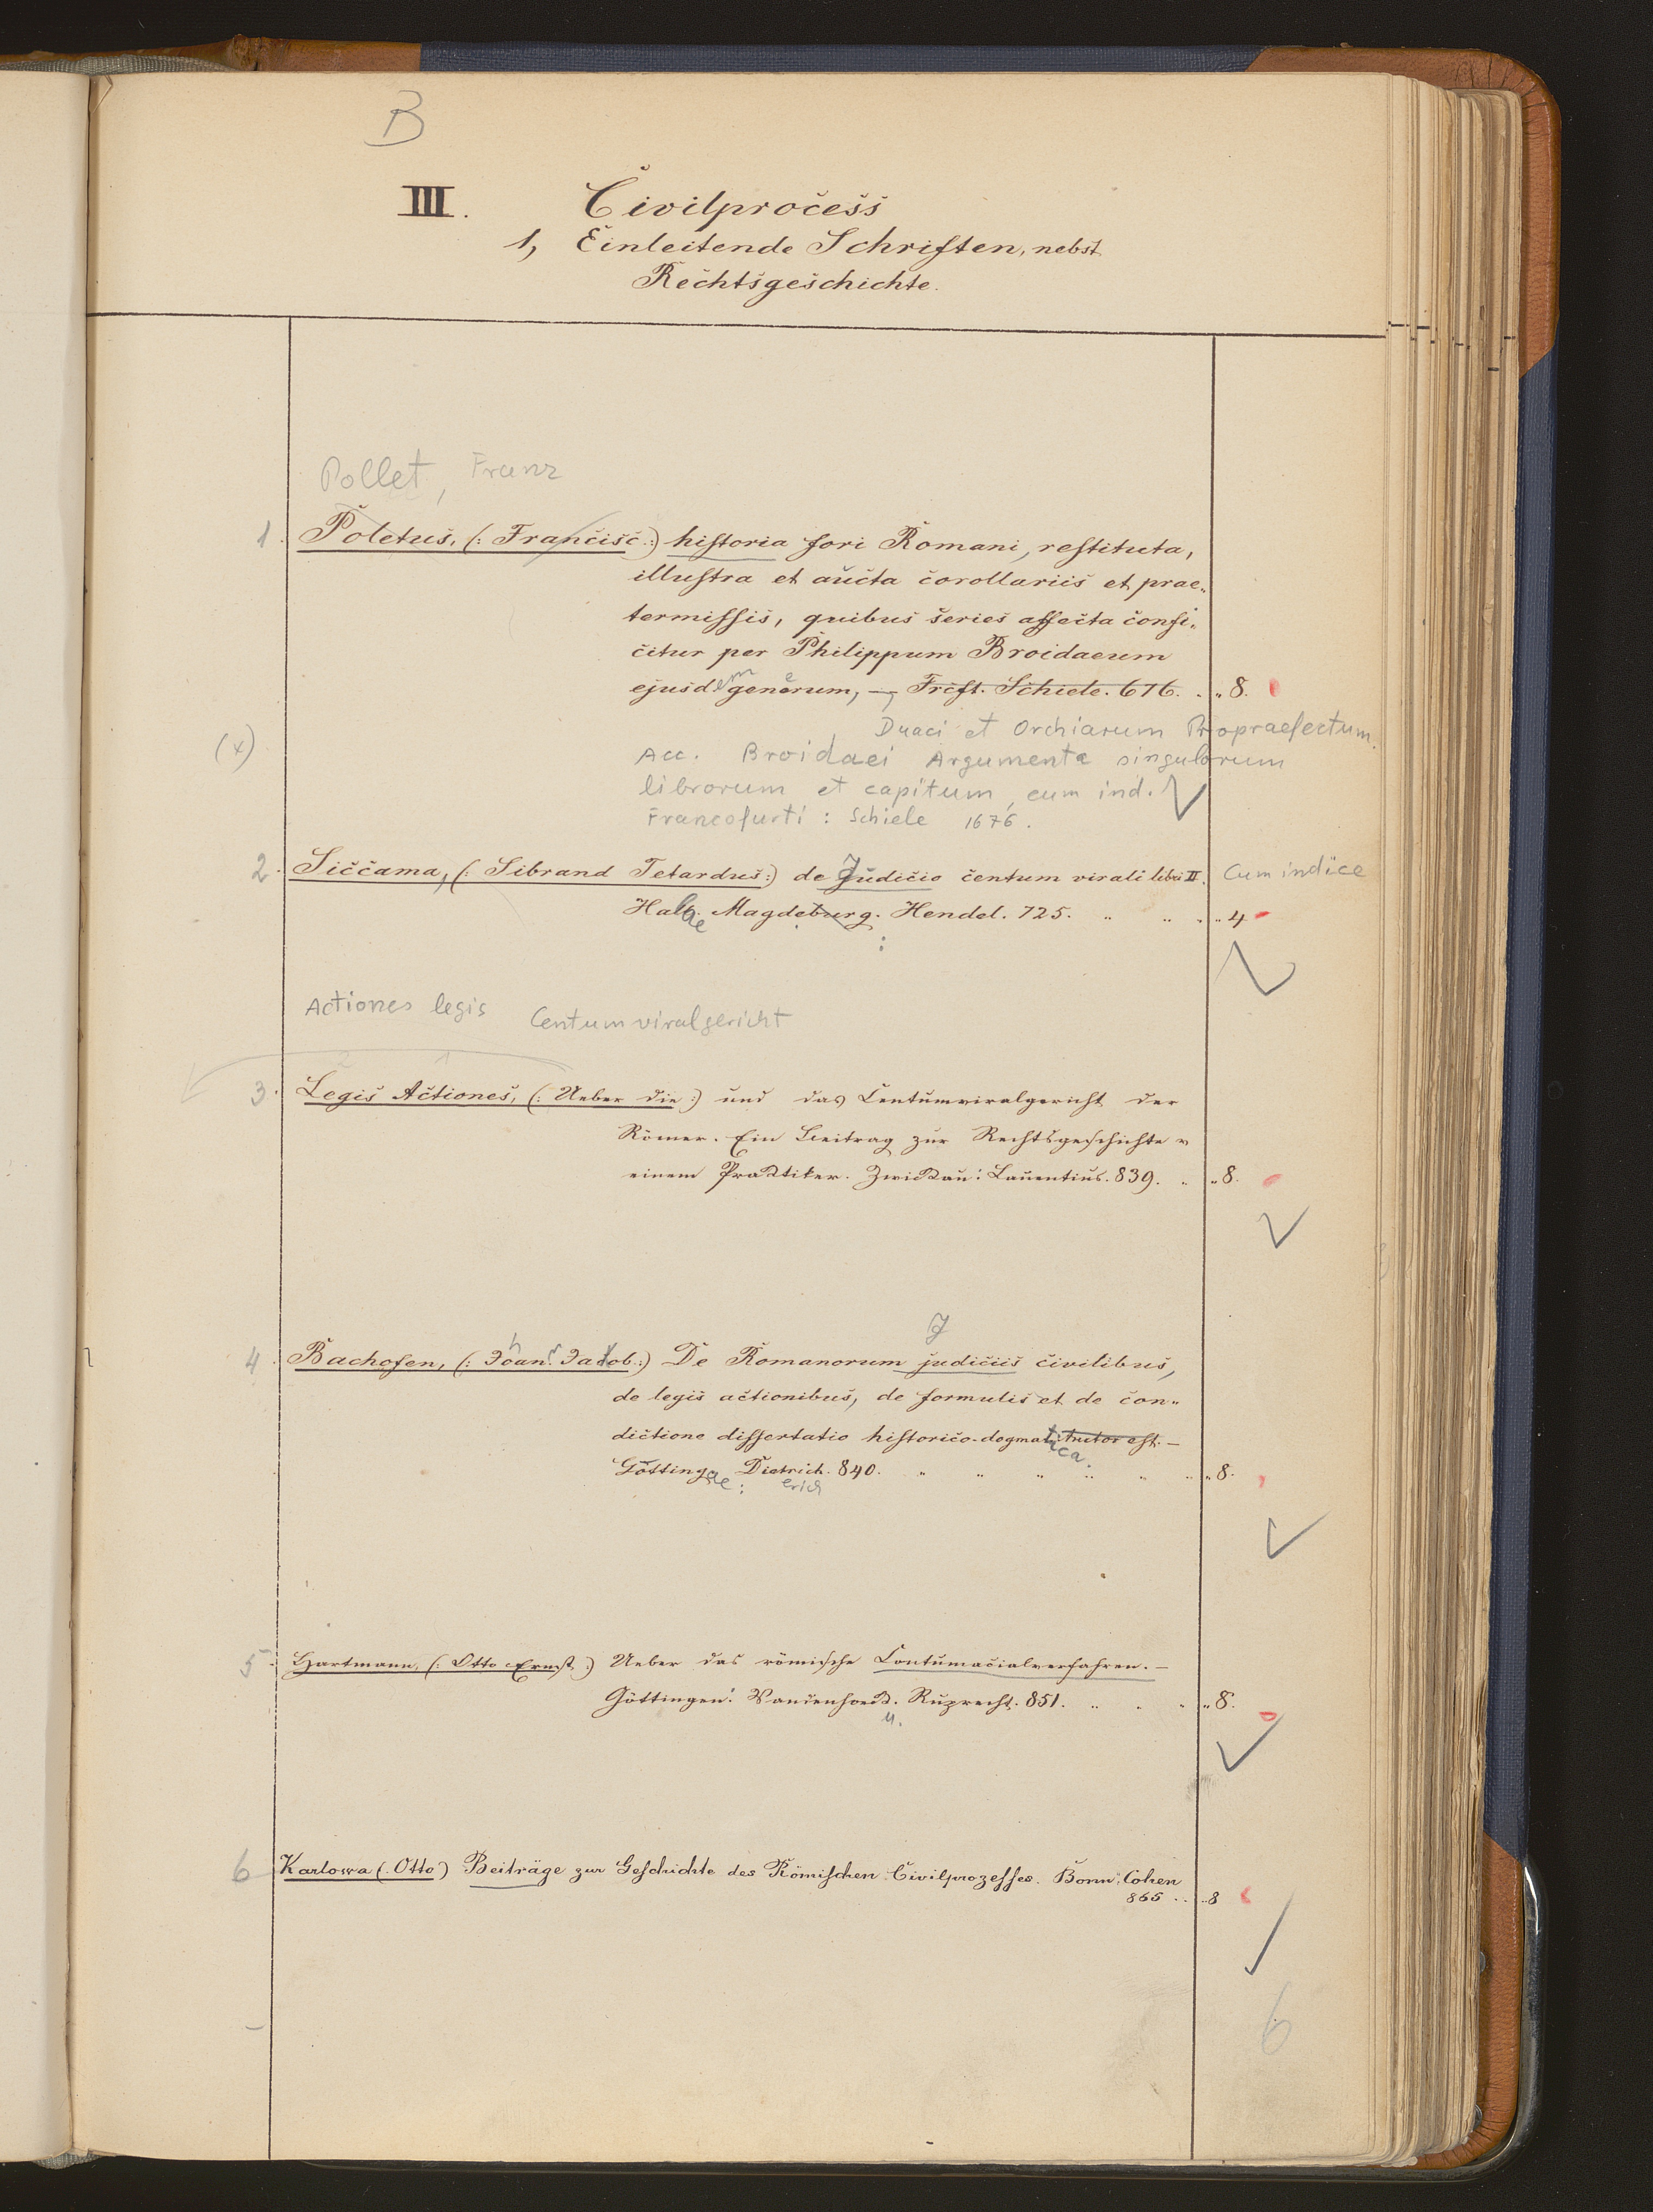 B
III. Civilprocess
1, Einleitende Schriften, nebst
Rechtsgeschichte.
Pollet, Franz
1. Poletus, (: Francisc.:) historia fori Romani, restituta,
illustra et aucta corollariis et prae„
termissis, quibus series affecta confi„
citur per Philippum Broidaeum
ejusdem generum, — Frcft. Schiele. 676. . „ 8.
Duaci et Orchiarum Propraefectum.
(x) Acc. Broidaei Argumenta singulorum
librorum et capitum, cum ind.
Francofurti: Schiele 1676.
2. Siccama, (: Sibrand Tetardus:) de Judicio centum virali libri II. Cum indice
Halae Magdeburg. Hendel. 725. „ „ „ „ 4
Actiones legis Centumviralgericht
2 1
3. Legis Actiones, (: Ueber die:) und das Centumviralgericht der
Römer. Ein Beitrag zur Rechtsgeschichte v
einem Practiker. Zwickau: Laurentius. 839. „ „ 8.
J
4. Bachofen, (: Johan. Jakob.:) De Romanorum judiciis civilibus,
de legis actionibus, de formulis et de con„
dictione dissertatio historico-dogmatica. —
Göttingae: Dietrich. 840. „ „ „ „ „ „ „ 8.
erich
5. Hartmann, (: Otto Ernst:) Ueber das römische Contumacialverfahren. —
Göttingen: Vandenhoeck. u. Ruprecht. 851. „ „ „ „ 8.
6 Karlowa (: Otto) Beiträge zur Geschichte des Römischen Civilprozesses. Bonn: Cohen
865 .. „ 8
6